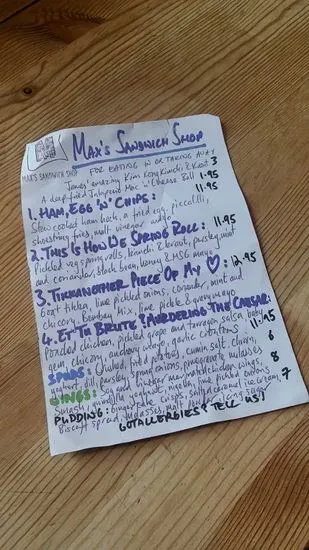 MAX'S SANDWICH SHOP
MAX'S SANDWICH SHOP
FOR EATING IN OR TAKING AWAY
James' amazing Kim Kong Kimchi & Kraut 3
A deep fried Jalapeno Mac 'n' Cheese Ball 1.95
1. HAM, EGG 'N' CHIPS: 11.95
Slow cooked ham hock, a fried egg, piccalilli,
shoestring fries, malt vinegar mayo
2. THIS IS HOW WE SPRING ROLL: 11.95
Pickled veg spring rolls, kimchi & kraut, parsley, mint
and coriander, black bean, honey & MSG mayo
3. TIKKANOTHER PIECE OF MY ♡: 12.95
Goat tikka, lime pickled onions, coriander, mint and
chicory, Bombay Mix, lime pickle & curry mayo
4. ET TU BRUTE? MURDERING THE CAESAR: 11.95
Poached chicken, pickled grape and tarragon salsa, baby
gem, chicory, anchovy mayo, garlic croutons
SPUDS: fried potatoes, cumin salt, chilli, 6
yoghurt, dill, parsley, onions, pomegranate molasses
WINGS: Soy and vinegar marinated chicken wings, 8
yoghurt, lime pickled onions
PUDDING: Ginger crisps, salted caramel ice cream, 7
Biscoff spread, molasses, malt icing sugar
GOT ALLERGIES? TELL US!